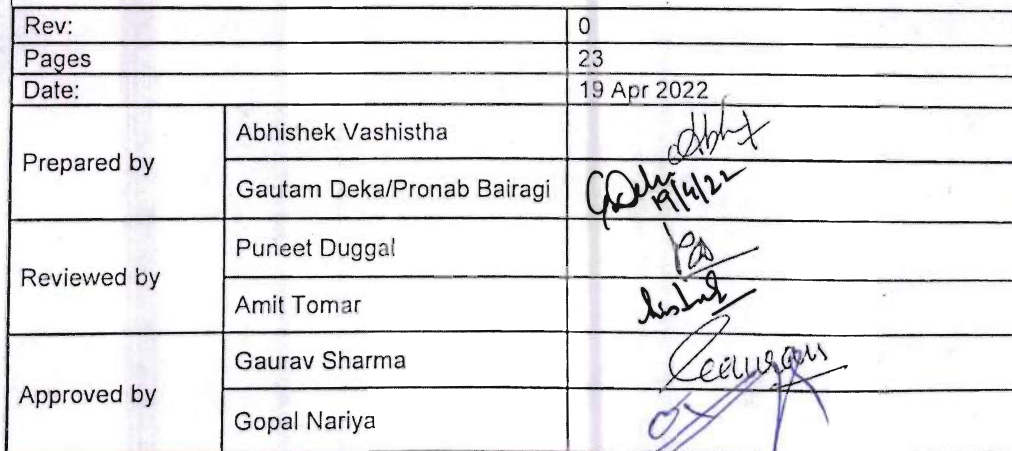 Rev: 0
Pages 23
Date: 19 Apr 2022
Prepared by
Abhishek Vashistha
Gautam Deka/Pronab Bairagi 19/4/22
Reviewed by
Puneet Duggal
Amit Tomar
Approved by
Gaurav Sharma
Gopal Nariya